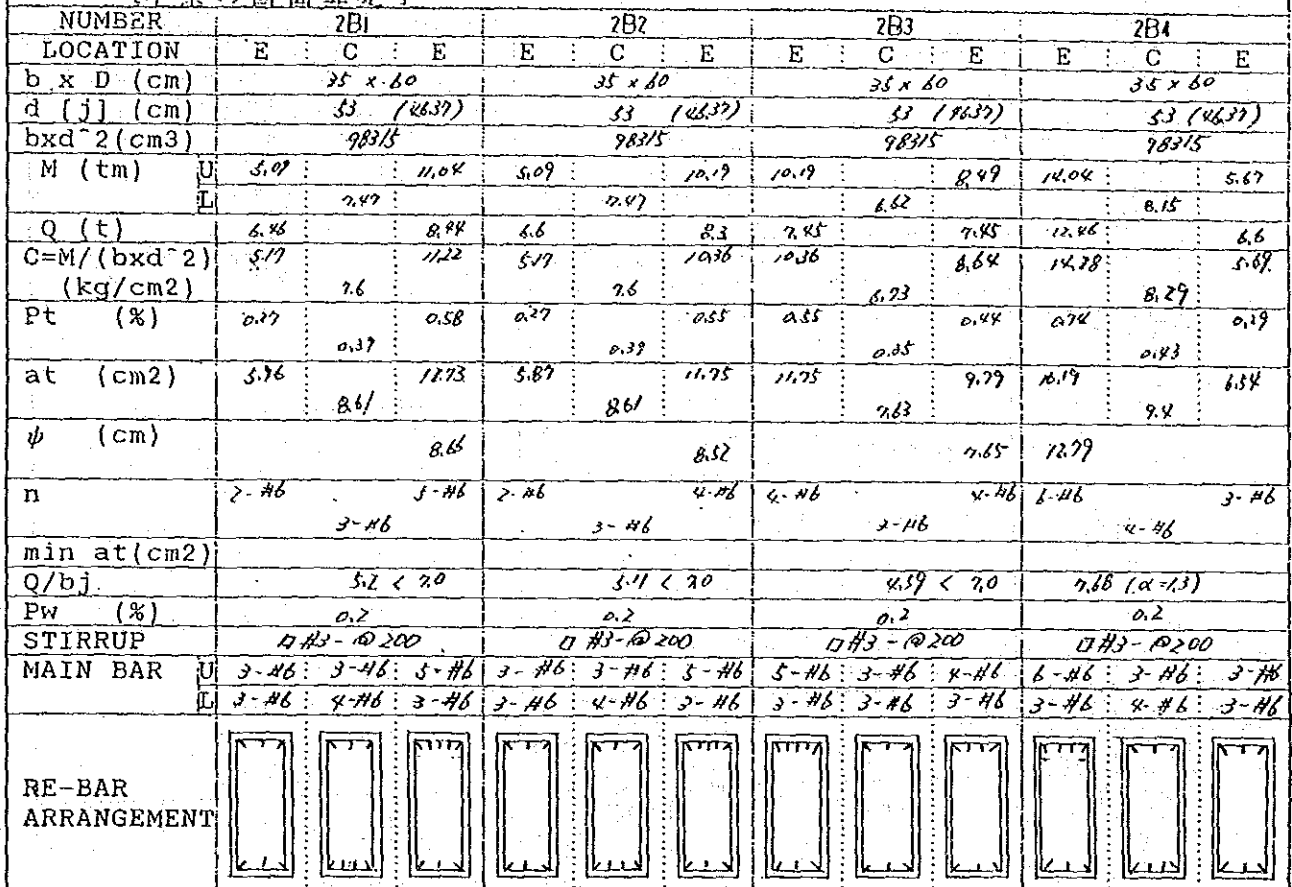 NUMBER 2B1 2B2 2B3 2B4
LOCATION E C E E C E E C E E C E
b x D (cm) 35 x 60 35 x 60 35 x 60 35 x 60
d [j] (cm) 53 (46.37) 53 (46.37) 53 (46.37) 53 (46.37)
bxd^2(cm3) 98315 98315 98315 98315
M (tm) U 5.09 11.04 5.09 10.19 10.19 8.49 14.04 5.67
L 7.47 7.47 6.62 8.15
Q (t) 6.46 8.44 6.6 8.3 7.45 7.45 12.46 6.6
C=M/(bxd^2) 5.17 11.22 5.17 10.36 10.36 8.64 14.28 5.69
(kg/cm2) 7.6 7.6 6.73 8.29
Pt (%) 0.27 0.58 0.27 0.55 0.55 0.44 0.74 0.29
0.39 0.39 0.35 0.43
at (cm2) 5.96 12.73 5.87 11.75 11.75 9.79 16.19 6.54
8.61 8.61 7.63 9.4
ψ (cm) 8.65 8.52 7.65 12.79
n 2-#6 5-#6 2-#6 4-#6 4-#6 4-#6 6-#6 3-#6
3-#6 3-#6 3-#6 4-#6
min at(cm2)
Q/bj 5.2 < 7.0 5.11 < 7.0 4.59 < 7.0 7.68 (α=1.3)
Pw (%) 0.2 0.2 0.2 0.2
STIRRUP □ #3-@200 □ #3-@200 □ #3-@200 □ #3-@200
MAIN BAR U 3-#6 3-#6 5-#6 3-#6 3-#6 5-#6 5-#6 3-#6 4-#6 6-#6 3-#6 3-#6
L 3-#6 4-#6 3-#6 3-#6 4-#6 3-#6 3-#6 3-#6 3-#6 3-#6 4-#6 3-#6
RE-BAR
ARRANGEMENT